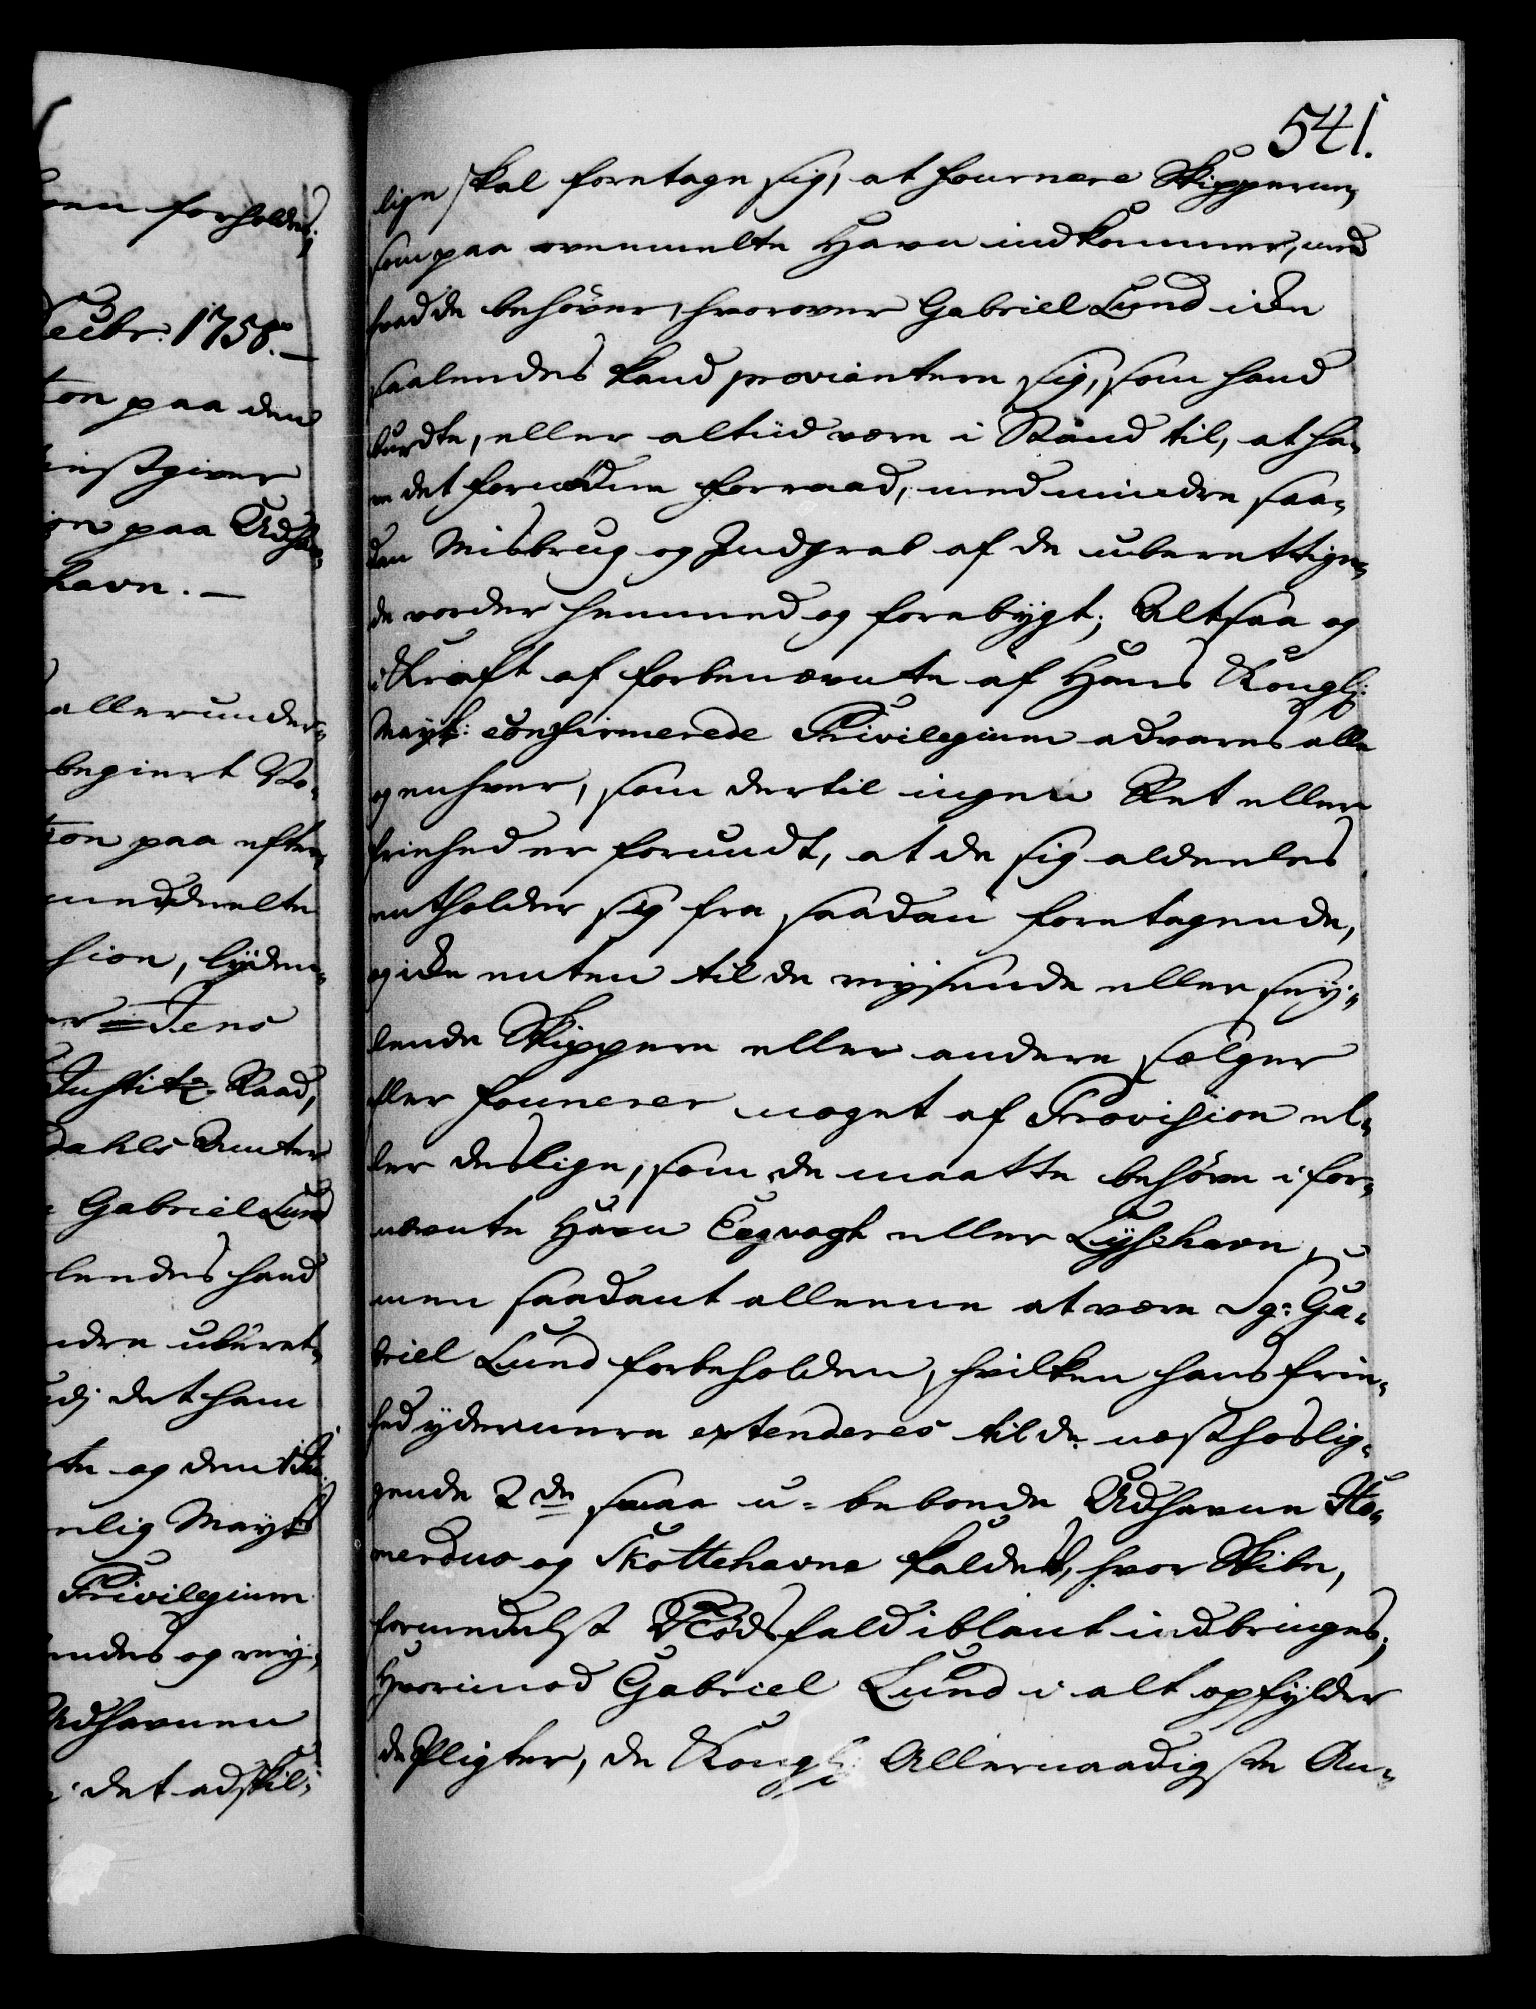 gen forholdes;
Decbr: 1758. —
tion paa den
giestgiver
ion paa Udhav¬
havn. —
allerunder¬
begiert Vo¬
tion paa efter
meddeelte
sion, lyden¬
er = Jens
Justitz Raad,
dahls Amter
Gabriel Lund
lendes hand
ndre uberet¬
udj det ham
te og dem til
nlig Mayts
Privilegium
endes og rey¬
Udhavnen
det adskil¬
541.
lige skal foretage sig, at fournere Skipperne,
som paa ovenmelte Havn indkommer, med
hvad de behöver, hvorover Gabriel Lund icke
saaledes kand proviantere sig, som hand
burdte, eller altiid være i Stand til, at ha¬
ve det fornödne Forraad, med mindre saa¬
dan Misbrug og Indgreb af de uberettige¬
de vorder hemmed og forebygt; Altsaa og
i Kraft af forbenævnte af Hans Kongl:
Mayts: confirmerede Privilegium advares alle
og enhver, som dertil ingen Ret eller
friehed er forundt, at de sig aldeeles
entholder sig fra saadan foretagende,
og icke enten til de reysende eller sey¬
lende Skippere eller andere sælger
eller founerer noget af Provision el¬
ler deslige, som de maatte behöve i for¬
nævnte Havn Eegvogt eller Lysehavn,
men saadant alleene at være Sr: Ga¬
briel Lund forbeholden, hvilken hans frie¬
hed ydermere extenderes til de næsthoslig¬
gende 2de smaa u-beboede Udhavne Ho¬
merdus og Skottehavne kaldes, hvor Skibe,
formedelst Nödsfald iblant indbringes;
Hvorimod Gabriel Lund i alt opfylder
de Pligter, de Kongl: Allernaadigste An¬